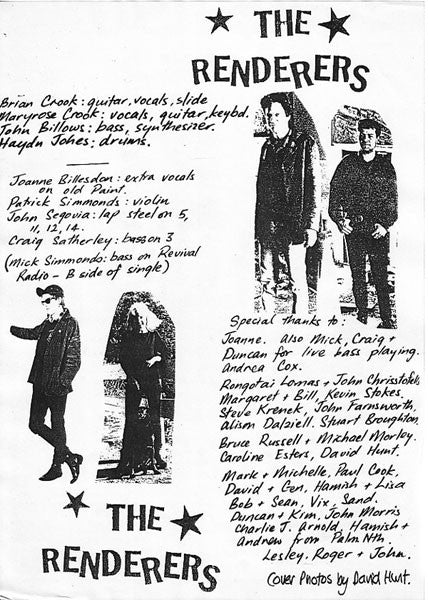 THE
RENDERERS
Brian Crook: guitar, vocals, slide
Maryrose Crook: vocals, guitar, keybd.
John Billows: bass, synthesizer.
Haydn Jones: drums.
Joanne Billesdon: extra vocals
on old Paint.
Patrick Simmonds: violin
John Segovia: lap steel on 5,
11, 12, 14.
Craig Satherley: bass on 3
(Mick Simmonds: bass on Revival
Radio - B side of single)
Special thanks to:
Joanne. also Mick, Craig +
Duncan for live bass playing.
Andrea Cox.
Rongotai Lomas + John Chrisstofels
Margaret + Bill, Kevin Stokes.
Steve Krenek, John Farnsworth,
Alison Dalziell. Stuart Broughton,
Bruce Russell + Michael Morley.
Caroline Esters, David Hunt.
Mark + Michelle, Paul Cook,
David + Gen, Hamish + Lisa
Bob + Sean, Vix, Sand.
Duncan + Kim, John Morris
Charlie J. Arnold, Hamish +
Andrew from Palm Nth.
Lesley. Roger + John.
Cover Photos by David Hunt.
THE
RENDERERS